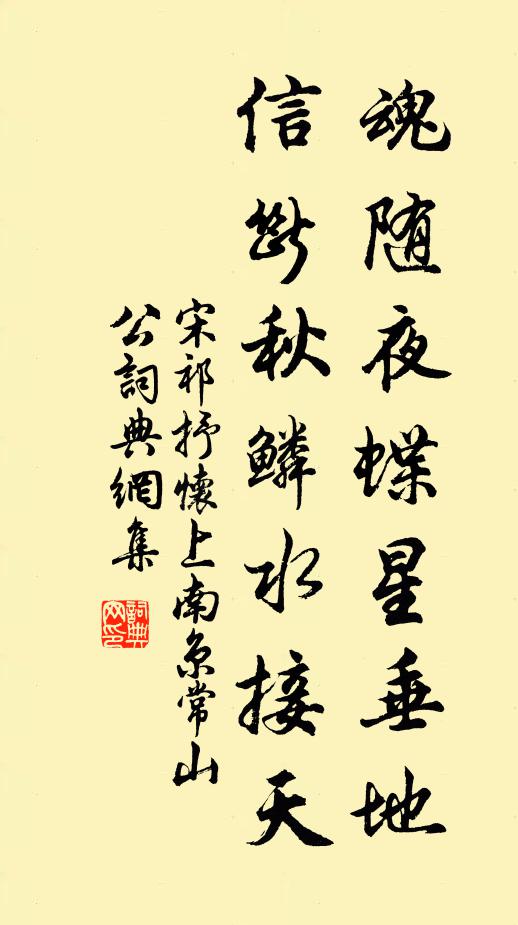 魂随夜蝶星垂地
信断秋鳞水接天
宋祁抒懷上南京常山
公詞典網集
詞典
网印